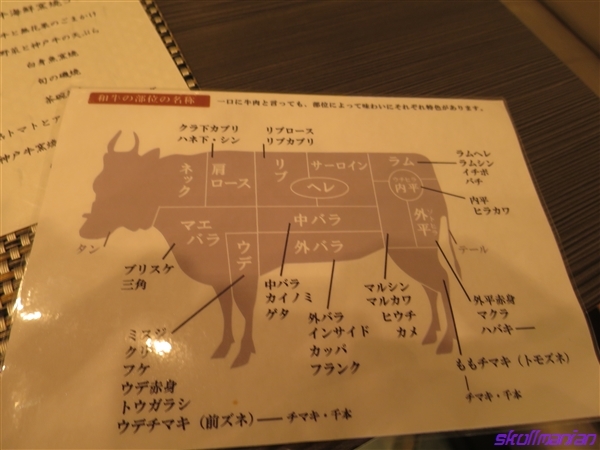 牛と無花果のごまかけ
野菜と神戸牛の天ぷら
白身魚萱焼
旬の磯焼
トマトとア
神戸牛萱焼
和牛の部位の名称
一口に牛肉と言っても、部位によって味わいにそれぞれ特色があります。
クラ下カブリ
ハネ下・シン
リブロース
リブカブリ
ネック
肩ロース
リブ
サーロイン
ヘレ
ラム
内平
ラムヘレ
ラムシン
イチボ
バチ
内平
ヒラカワ
マエバラ
中バラ
外バラ
外平
ウデ
タン
テール
ブリスケ
三角
中バラ
カイノミ
ゲタ
マルシン
マルカワ
ヒウチ
カメ
外平赤身
マクラ
ハバキ
外バラ
インサイド
カッパ
フランク
ミスジ
クリ
フケ
ウデ赤身
トウガラシ
ウデチマキ（前ズネ）
チマキ・千本
ももチマキ（トモズネ）
チマキ・千本
skullmanian